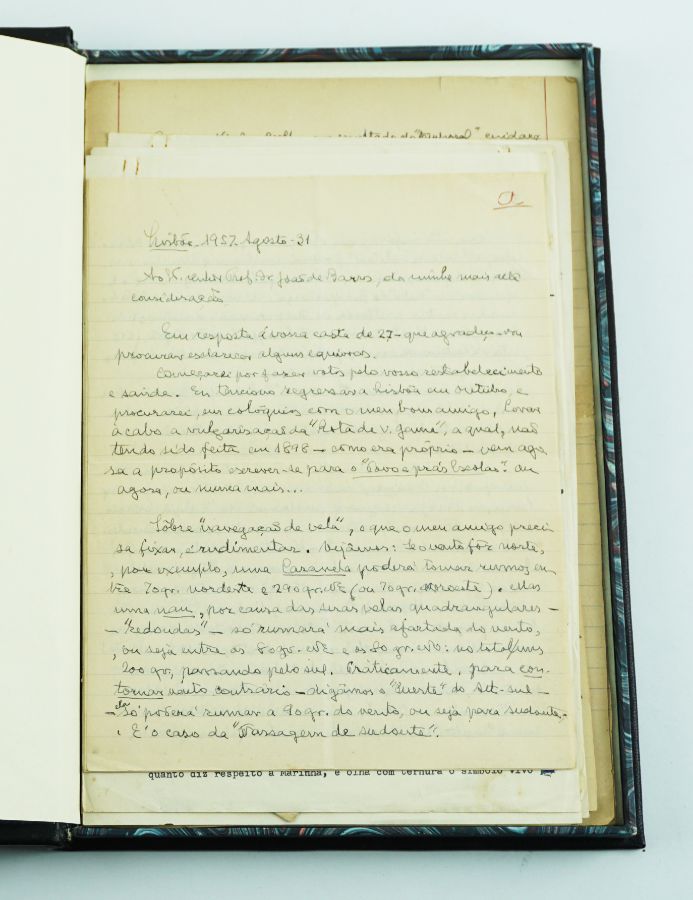 a
Lisboa. 1957. Agosto-31
Ao Sr. Prof. Dr. João de Barros, da minha mais alta
consideração
Em resposta á vossa carta de 27 - que agradeço - vou
procurar esclarecer alguns equívocos.
Começarei por fazer votos pelo vosso restabelecimento
e saúde. Eu tenciono regressar a Lisboa em outubro, e
procurarei, em colóquios com o meu bom amigo, levar
a cabo a vulgarisação da "Rota de V. Gama", a qual, não
tendo sido feita em 1898 - como era próprio - vem ago
ra a propósito escrever-se para o "Povo e prás Escolas". Ou
agora, ou nunca mais...
Sôbre "navegação de vela", o que o meu amigo preci
sa fixar, é rudimentar. Vejâmos: se o vento fôr norte,
, por exemplo, uma Caravela poderá tomar rumos en
tre 70gr. nordeste e 290gr. (ou 70gr. noroeste). Mas
uma nau, por causa das suas velas quadrangulares -
- "redondas" - só rumará mais afastada do vento,
, ou seja entre os 80gr. e os 80gr. : no total, uns
200 gr, passando pelo sul. Práticamente, para con-
tornar vento contrário - digâmos o "Sueste" do -sul -
- só poderá rumar a 90gr. do vento, ou seja para sudoeste.
. É o caso da "Passagem de sudoeste".
quanto diz respeito à Marinha, e olha com ternura o símbolo vivo